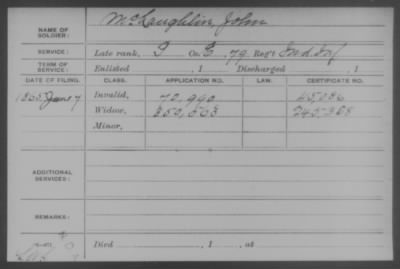 NAME OF SOLDIER: McLaughlin, John
SERVICE: Late rank, Co. E, 79 Reg't Ind. Inf.
TERM OF SERVICE: Enlisted , 1 Discharged , 1
DATE OF FILING. CLASS. APPLICATION NO. LAW. CERTIFICATE NO.
1865 June 7 Invalid, 70,990 45,086
Widow, 350,503
Minor,
ADDITIONAL SERVICES:
REMARKS:
Died , 1 , at